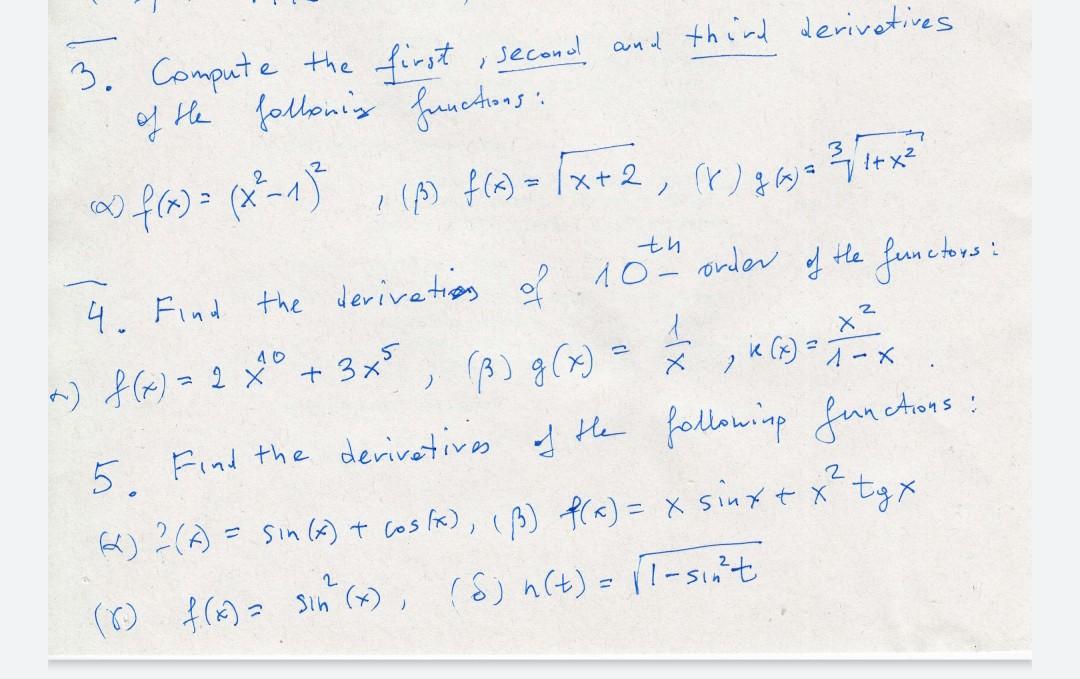 3. Compute the first, second and third derivatives
of the following functions:
α) f(x) = (x²-1)², (β) f(x) = √(x+2), (γ) g(x) = ∛(1+x²)
4. Find the derivatives of 10th order of the functions:
α) f(x) = 2x¹⁰ + 3x⁵, (β) g(x) = 1/x, κ(x) = x²/(1-x).
5. Find the derivatives of the following functions:
(α) f(x) = sin(x) + cos(x), (β) f(x) = x sinx + x² tgx
(γ) f(x) = sin²(x), (δ) h(t) = √(1-sin²t)